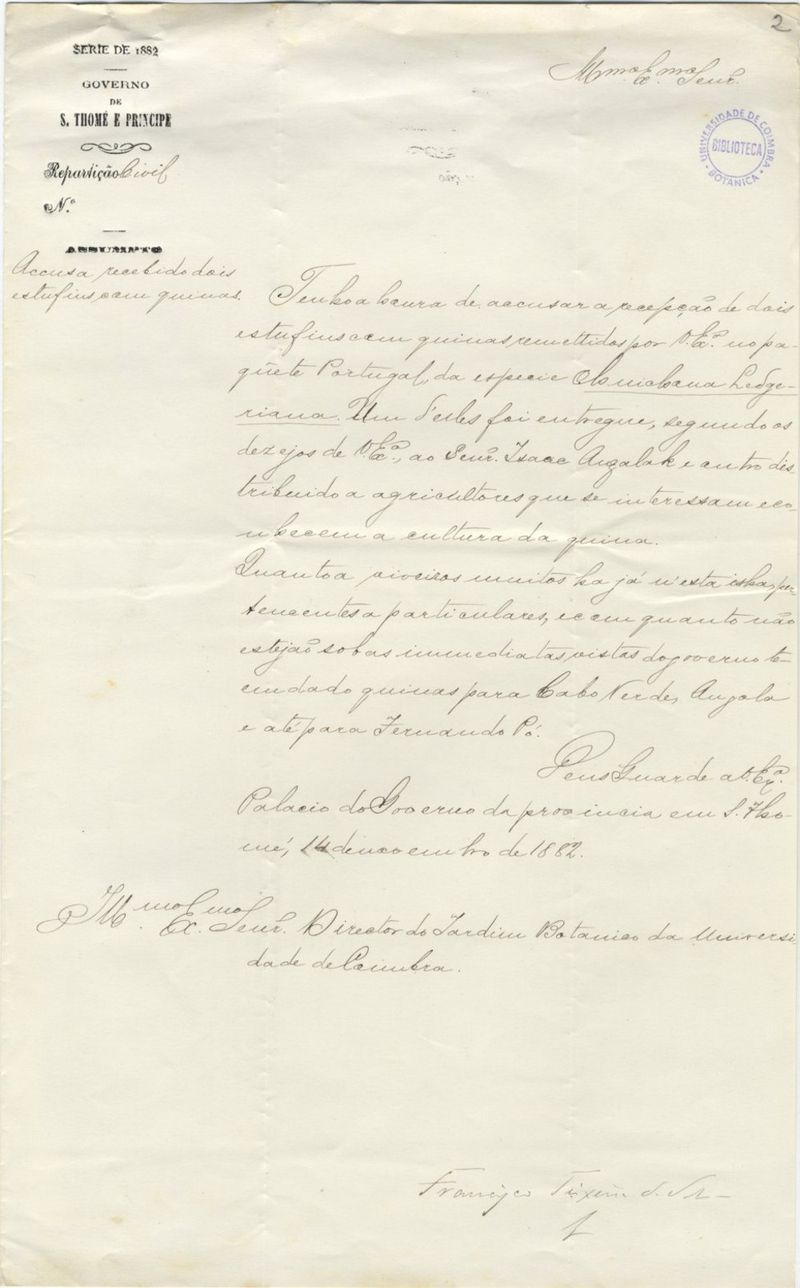 2
SERIE DE 1882
GOVERNO
DE
S. THOMÉ E PRINCIPE
Repartição Civil
N.º
ASSUMPTO
Accusa recebido dois
estufins com quinas.
Illmo. Exmo. Senr.
UNIVERSIDADE DE COIMBRA
BIBLIOTECA
BOTANICA
Tenho a honra de accusar a recepção de dois
estufins com quinas remettidos por V. Exª. no pa-
quête Portugal, da especie Chinchona Ledge-
riana. Um d'estes foi entregue, segundo os
dezejos de V. Exª., ao Senr. Isaac e outro dis-
tribuido a agricultores que se interessam e co-
nhecem a cultura da quina.
Quanto a viveiros muitos ha já n'esta ilha, per-
tencentes a particulares, e com quanto não
estejão sob as immediatas vistas do governo te-
em dado quinas para Cabo Verde, Angola
e até para Fernando Pó.
Deus Guarde a V. Exª.
Palacio do Governo da provincia em S. Tho-
mé, 14 de novembro de 1882.
Illmo. Exmo. Senr. Director do Jardim Botanico da Universi
dade de Coimbra.
Francisco Teixeira da